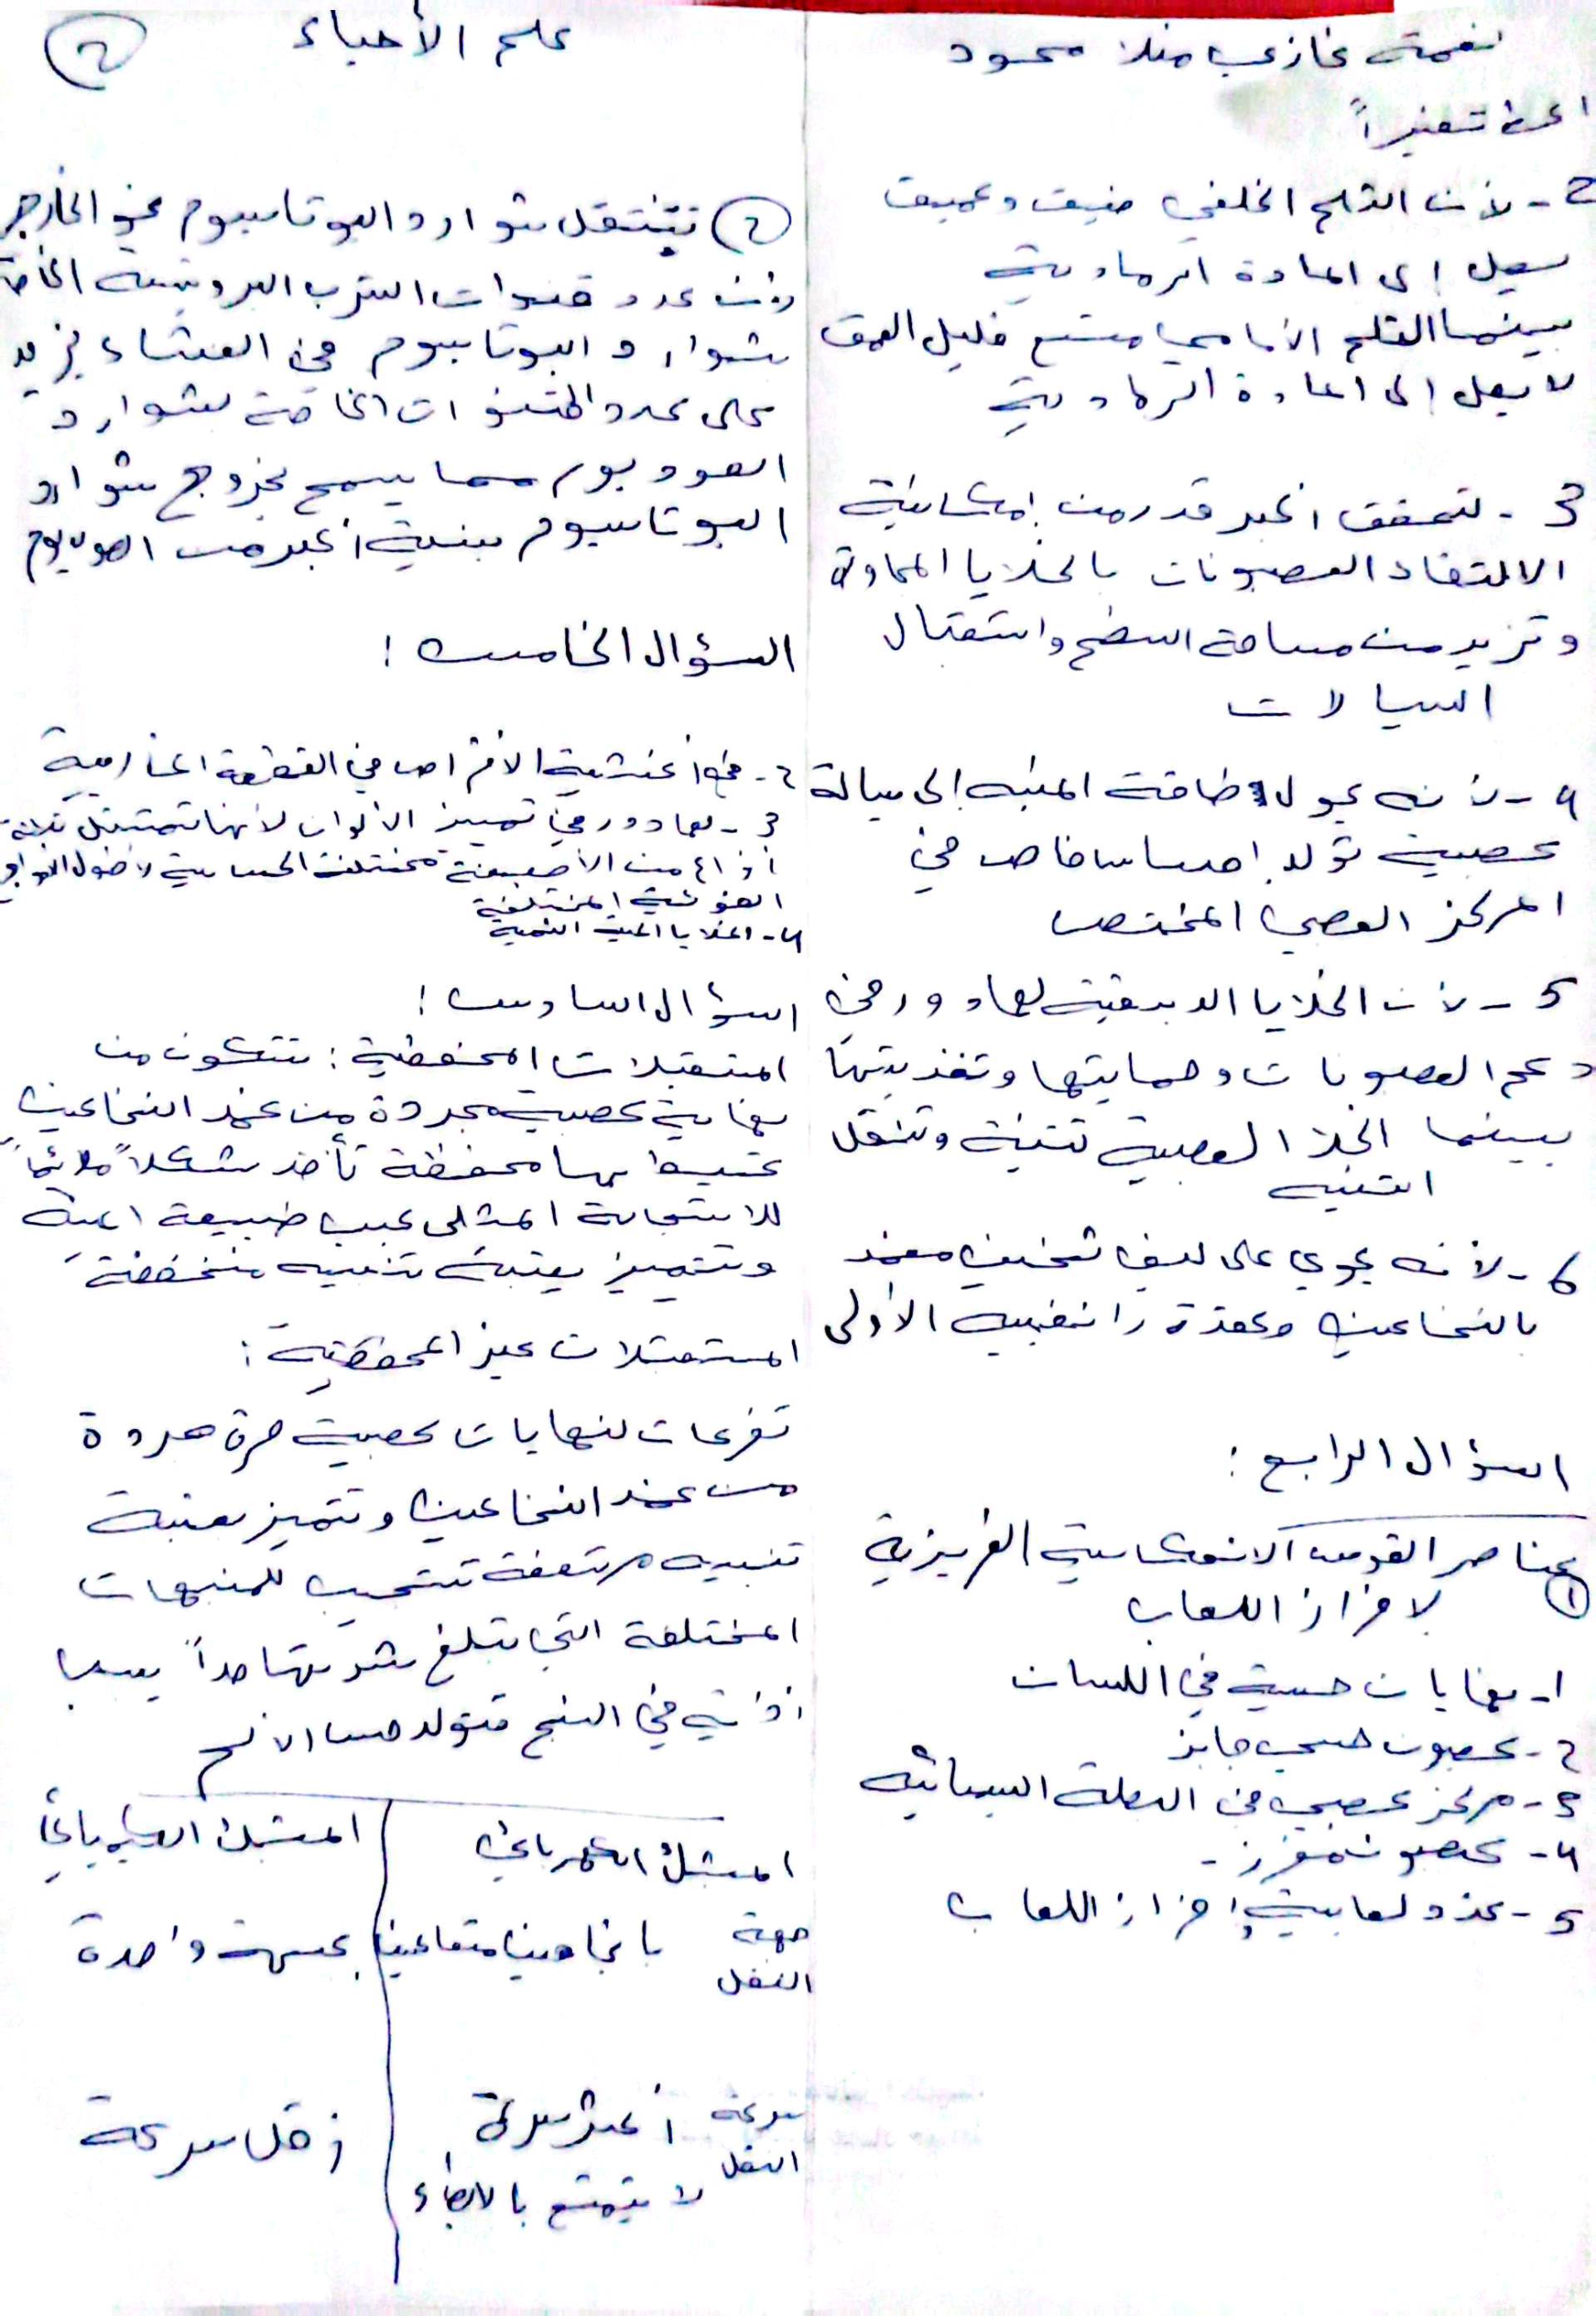 نغمة غازي منلا محمود
علم الأحياء
٢
اعط تفسيراً
2- لأن الثلم الخلفي ضيق وعميق
يصل إلى المادة الرمادية
بينما الثلم الأمامي متسع قليل العمق
لا يصل إلى المادة الرمادية
3- لتحقق اكبر قدر من إمكانية
الالتقاء العصبونات بالخلايا المجاورة
وتزيد من مساحة السطح واستقبال
السيالات
4- لأنه يحول طاقة المنبه إلى سيالة
عصبية تولد إحساس خاص في
المركز العصبي المختص
5- لأن الخلايا الدبقية لها دور في
دعم العصبونات وحمايتها وتغذيتها
بينما الخلايا العصبية تتنبه وتنقل
التنبيه
6- لأنه يحوي على ليف ثخين مغمد
بالنخاعين وعقدة رانفييه الأولى
السؤال الرابع :
① عناصر القوس الانعكاسية الغريزية
لافراز اللعاب
1- نهايات حسية في اللسان
2- عصبون حسي جابذ
3- مركز عصبي في البصلة السيسائية
4- عصبون مفرز -
5- غدد لعابية إفراز اللعاب
② تنتقل شوارد البوتاسيوم نحو الخارج
لأن عدد قنوات التسرب البروتينية الخاصة
بشوارد البوتاسيوم في الغشاء يزيد
على عدد القنوات الخاصة لشوارد
الصوديوم مما يسمح بخروج شوارد
البوتاسيوم بنسبة أكبر من الصوديوم
السؤال الخامس :
2- في أغشية الأقراص في القطعة الخارجية
3- لها دور في تمييز الألوان لأنها تمتلك ثلاثة
أنواع من الأصبغة مختلفة الحساسية لأطوال الأمواج
الضوئية المختلفة
4- الخلايا الحسية الشمية
السؤال السادس :
المستقبلات المحفظية : تتكون من
نهاية عصبية مجردة من غمد النخاعين
تحيط بها محفظة تأخذ شكلاً ملائماً
للاستجابة المثلى حسب طبيعة المنبه
وتتميز بعتبة تنبيه منخفضة
المستقبلات غير المحفظية :
تفرعات لنهايات عصبية حرة مجردة
من غمد النخاعين وتتميز بعتبة
تنبيه مرتفعة تستجيب للمنبهات
المختلفة التي تبلغ شدتها حداً يسبب
أذية في النسج فتولد حس الألم
المشبك الكهربائي المشبك الكيميائي
جهة النقل باتجاهين متعاكسين بجهة واحدة
سرعة النقل أكثر سرعة أقل سرعة
لا يتمتع بالإبطاء